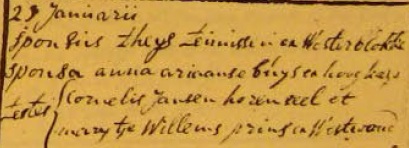 23 Januarii
sponsus theys teunisse in en Westerblokke
sponsa anna ariaanse buys en hoogkars
testes cornelis Jansen horenseel et
marytje Willems prins en Westwoud